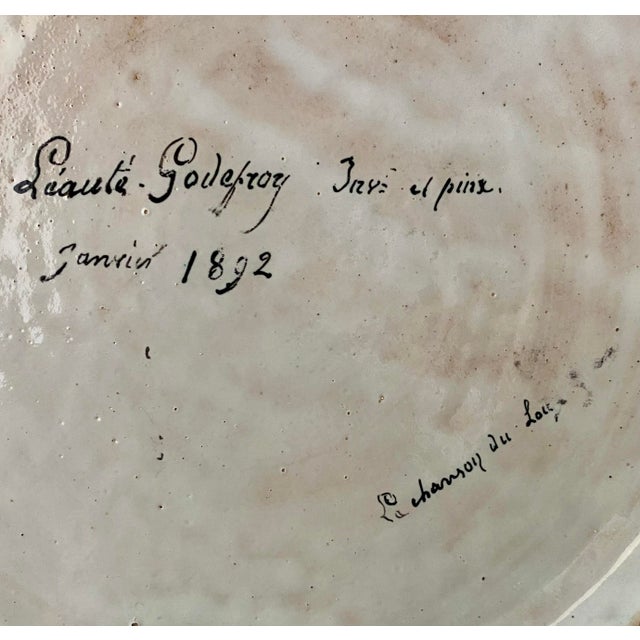 Léauté-Godefroy Inv: et pinx.
Janvier 1892
La chanson du